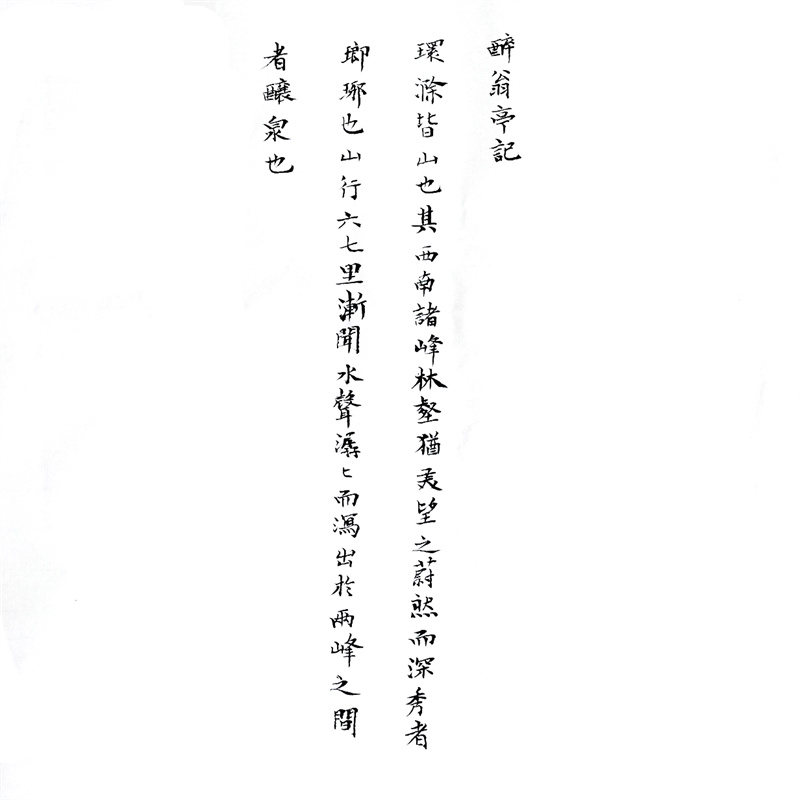 醉翁亭記
環滁皆山也其西南諸峰林壑猶美望之蔚然而深秀者
瑯琊也山行六七里漸聞水聲潺々而瀉出於兩峰之間
者釀泉也